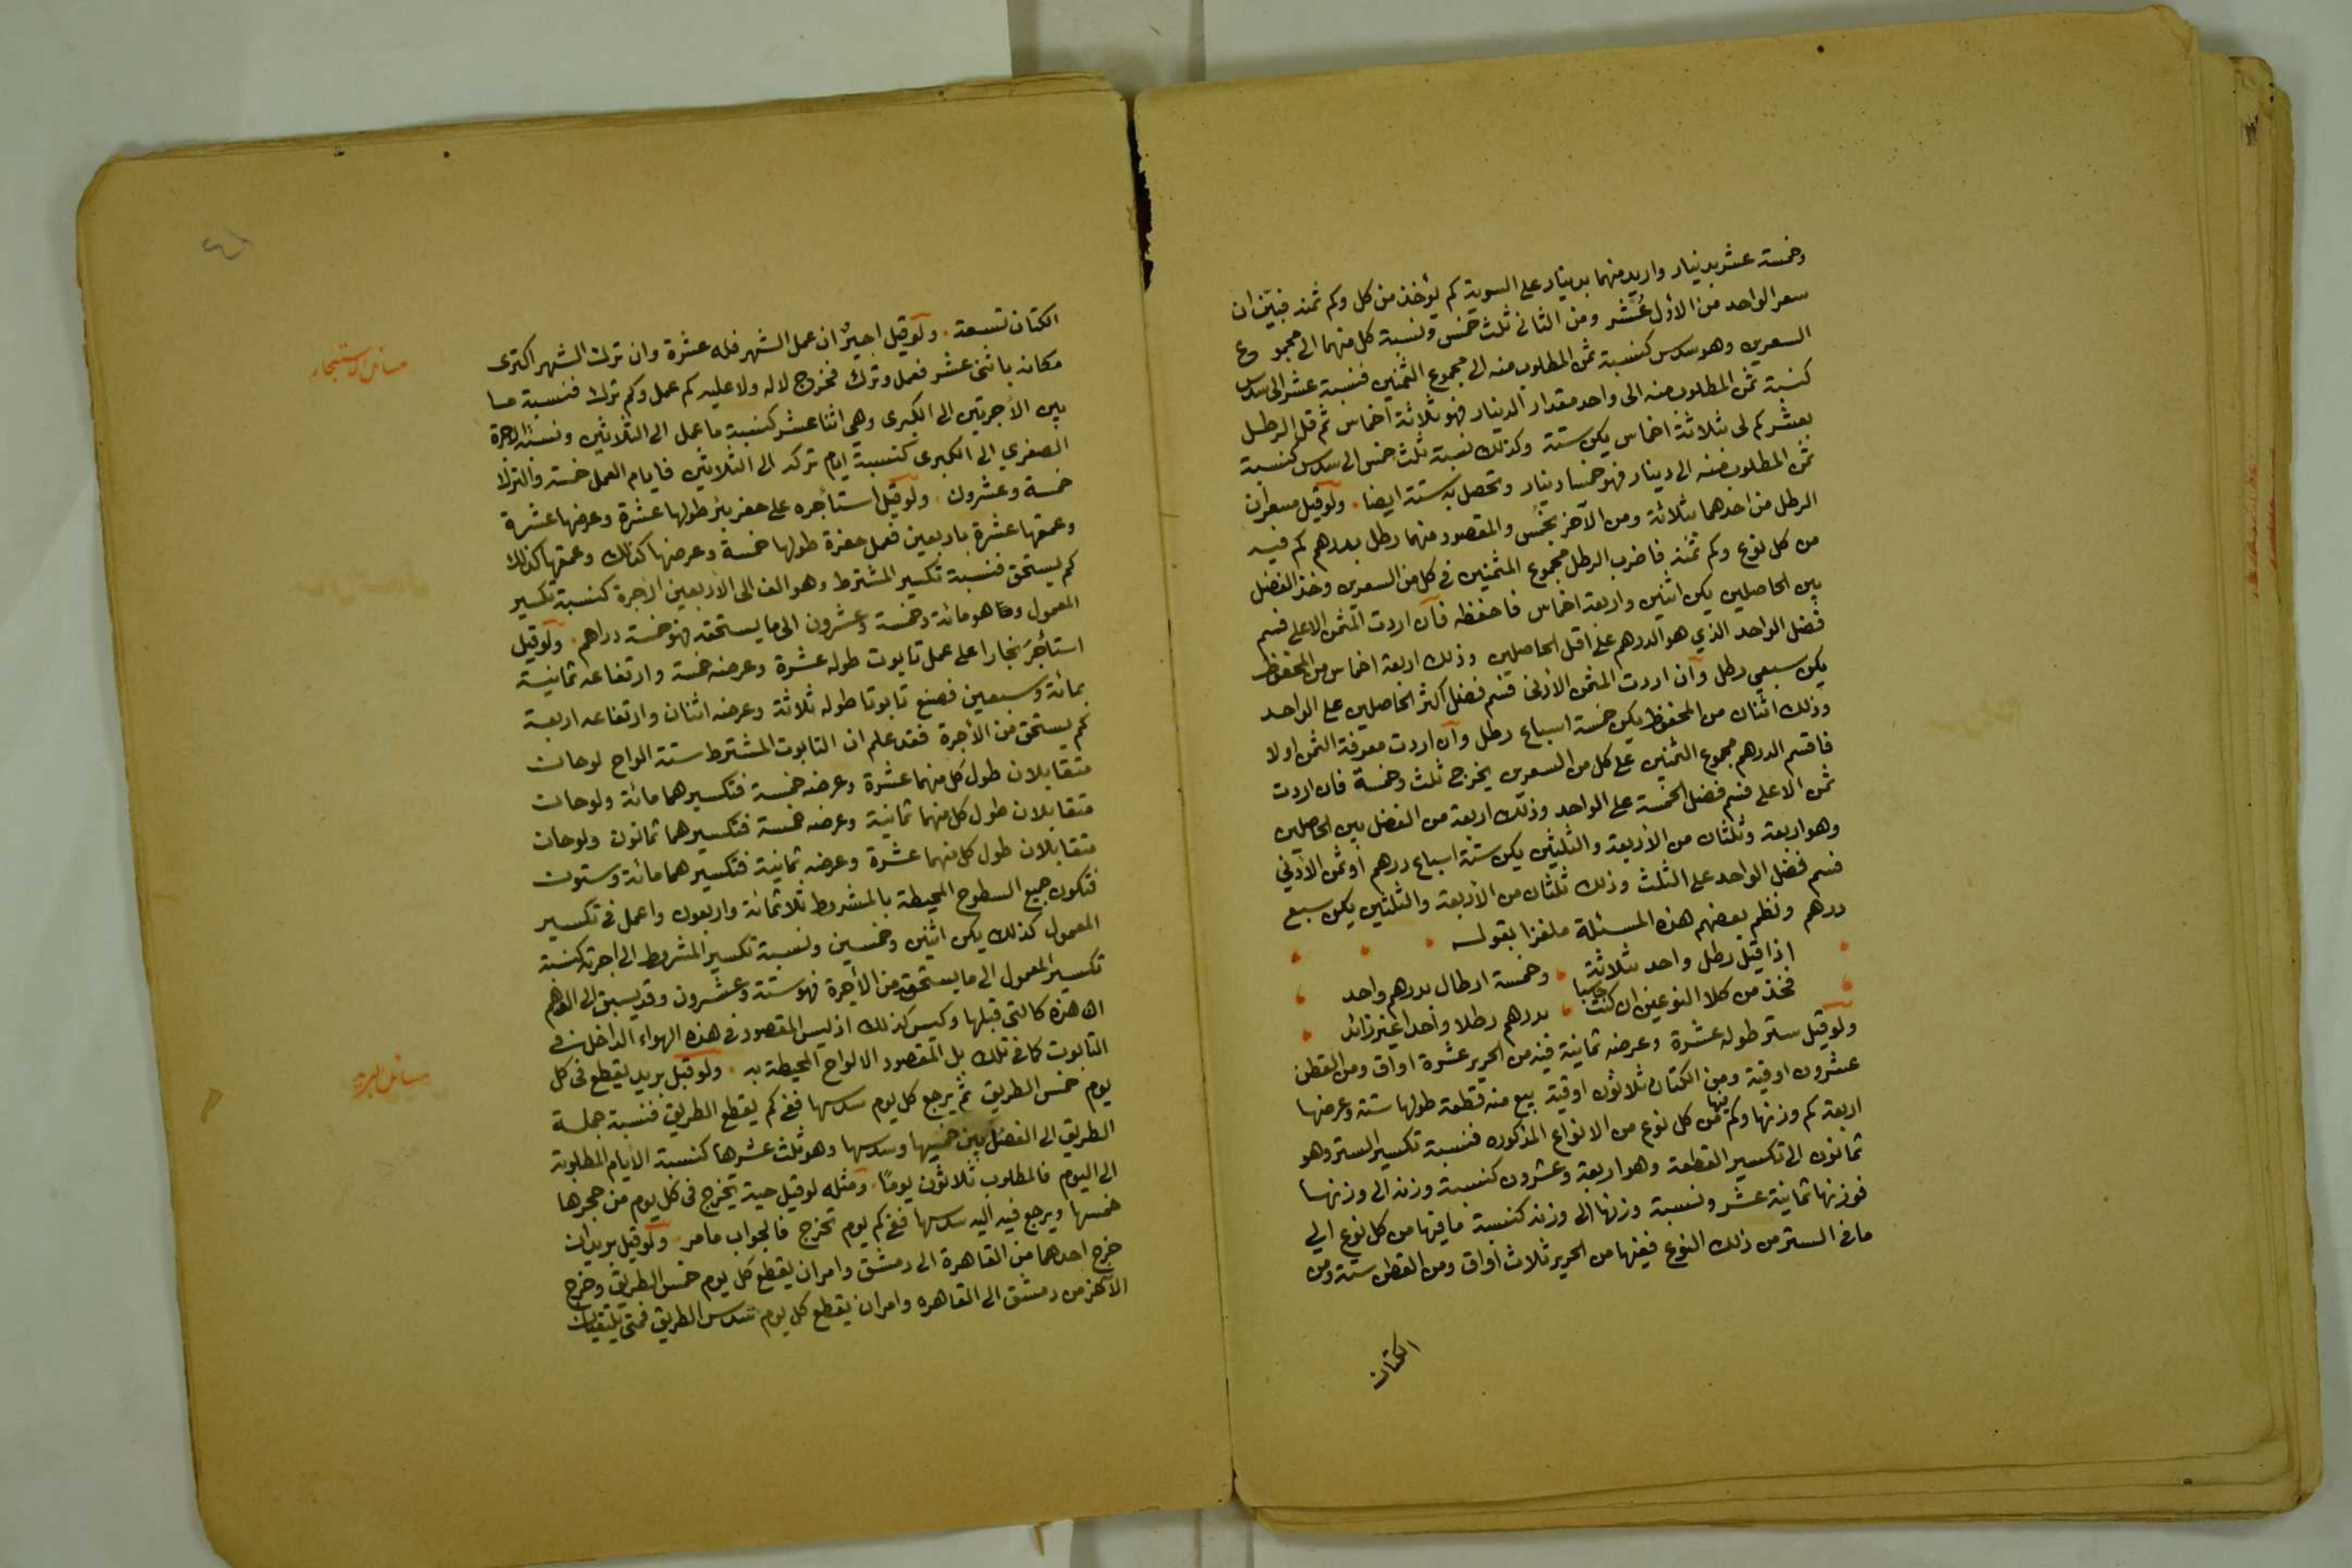 وخمسة عشر بدينار واريد منهما بدينار على السوية كم يؤخذ من كل وكم ثمنه فبيّن ان
سعر الواحد من الأول عُشر ومن الثاني ثلث خمس ونسبة كل منهما الى مجموع
السعرين وهو سدس كنسبة ثمن المطلوب منه الى مجموع الثمنين فنسبة عشر الى سدس
كنسبة ثمن المطلوب منه الى واحد مقدار الدينار فهو ثلاثة اخماس ثم قل الرطل
بعشر كم لى بثلاثة اخماس يكن ستة وكذلك نسبة ثلث خمس الى سدس كنسبة
ثمن المطلوب منه الى دينار فهو خمسا دينار وتحصل به ستة ايضا . ولو قيل مسعران
الرطل من احدهما بثلاثة ومن الآخر بخمس والمقصود منهما رطل بدرهم كم فيه
من كل نوع وكم ثمنه فاضرب الرطل مجموع المثمنين في كل من السعرين وخذ الفضل
بين الحاصلين يكن اثنين واربعة اخماس فاحفظه فان اردت المثمن الاعلى فسم
فضل الواحد الذي هو الدرهم على اقل الحاصلين وذلك اربعة اخماس من المحفوظ
يكن سبعي رطل وان اردت المثمن الأدنى فسم فضل اكثر الحاصلين على الواحد
وذلك اثنان من المحفوظ يكن خمسة اسباع رطل وان اردت معرفة الثمن اولا
فاقسم الدرهم مجموع الثمنين على كل من السعرين يخرج ثلث وخمسة فان اردت
ثمن الاعلى فسم فضل الخمسة على الواحد وذلك اربعة من الفضل بين الحاصلين
وهو اربعة وثلثان من الأربعة والثلثين يكن ستة اسباع درهم او ثمن الأدني
فسم فضل الواحد على الثلث وذلك ثلثان من الأربعة والثلثين يكن سبع
درهم ونظم بعضهم هذه المسئلة ملغزا بقوله
اذا قيل رطل واحد بثلاثة وخمسة ارطال بدرهم واحد
فخذ من كلا النوعين ان كنت حاسبا بدرهم رطلا واحدا غير زائد
ولو قيل ستر طوله عشرة وعرضه ثمانية فيه من الحرير عشرة اواق ومن القطن
عشرون اوقية ومن الكتان ثلاثون اوقية بيع منه قطعة طولها ستة وعرضها
اربعة كم وزنها وكم فيها من كل نوع من الانواع المذكوره فنسبة تكسير الستر وهو
ثمانون الى تكسير القطعة وهو اربعة وعشرون كنسبة وزنه الى وزنها
فوزنها ثمانية عشر ونسبة وزنها الى وزنه كنسبة ما فيها من كل نوع الي
ما في الستر من ذلك النوع ففيها من الحرير ثلاث اواق ومن القطن ستة ومن
الكتان
الكتان تسعة . ولو قيل اجيرٌ ان عمل الشهر فله عشرة وان ترك الشهر اكترى
مسائل الاستيجار
مكانه باثني عشر فعمل وترك فخرج لا له ولا عليه كم عمل وكم ترك فنسبة ما
بين الأجرتين الى الكبرى وهي اثنا عشر كنسبة ما عمل الى الثلاثين ونسبة الاجرة
الصغري الى الكبرى كنسبة ايام تركه الى الثلاثين فايام العمل خمسة والترك
خمسة وعشرون . ولو قيل استأجره على حفر بئر طولها عشرة وعرضها عشرة
وعمقها عشرة باربعين فعمل حفرة طولها خمسة وعرضها كذلك وعمقها كذلك
كم يستحق فنسبة تكسير المشترط وهو الف الى الأربعين الاجرة كنسبة تكسير
المعمول وهو مائة وخمسة وعشرون الى ما يستحقه فهو خمسة دراهم . ولو قيل
استأجرَ نجارا على عمل تابوت طوله عشرة وعرضه خمسة وارتفاعه ثمانية
بمائة وسبعين فصنع تابوتا طوله ثلاثة وعرضه اثنان وارتفاعه اربعة
كم يستحق من الأجرة فقد علم ان التابوت المشترط ستة الواح لوحان
متقابلان طول كل منهما عشرة وعرضه خمسة فتكسيرهما مائة ولوحان
متقابلان طول كل منهما ثمانية وعرضه خمسة فتكسيرهما ثمانون ولوحان
متقابلان طول كل منهما عشرة وعرضه ثمانية فتكسيرهما مائة وستون
فتكون جميع السطوح المحيطة بالمشروط ثلاثمائة واربعون واعمل في تكسير
المعمول كذلك يكن اثنين وخمسين ونسبة تكسير المشروط الى اجرته كنسبة
تكسير المعمول الى ما يستحقه من الأجرة فهو ستة وعشرون وقد يسبق الى الوهم
ان هذه كالتى قبلها وليس كذلك اذ ليس المقصود في هذه الهواء الداخل في
التابوت كما في تلك بل المقصود الالواح المحيطة به . ولو قيل بريد يقطع في كل
مسائل البريد
يوم خمس الطريق ثم يرجع كل يوم سدسها ففي كم يقطع الطريق فنسبة جملة
الطريق الى الفضل بين خمسها وسدسها وهو ثلث عشرها كنسبة الأيام المطلوبة
الى اليوم فالمطلوب ثلاثون يومًا . ومثله لو قيل حية تخرج في كل يوم من حجرها
خمسها ويرجع فيه اليه سدسها ففي كم يوم تخرج فالجواب ما مر . ولو قيل بريدان
خرج احدهما من القاهرة الى دمشق وامر ان يقطع كل يوم خمس الطريق وخرج
الآخر من دمشق الى القاهره وامر ان يقطع كل يوم سدس الطريق فمتى يلتقيان